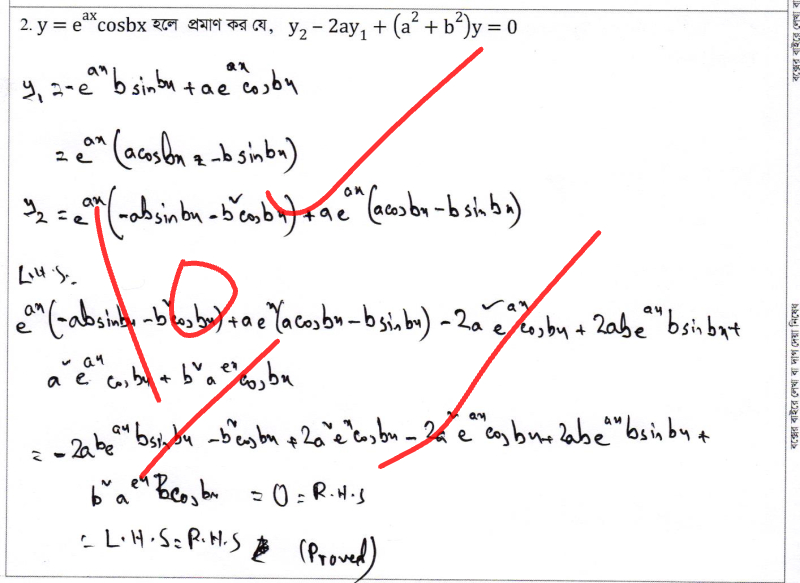 2. y = e^{ax}cosbx হলে প্রমাণ কর যে, y₂ − 2ay₁ + (a² + b²)y = 0
y₁ = -e^{ax} b sinbx + a e^{ax} cosbx
= e^{ax} (acosbx - b sinbx)
y₂ = e^{ax} (-ab sinbx - b² cosbx) + a e^{ax} (acosbx - b sinbx)
L.H.S.
e^{ax} (-absinbx - b² cosbx) + a e^{x} (acosbx - b sinbx) - 2a² e^{ax} cosbx + 2abe^{ax} b sinbx +
a² e^{ax} cosbx + b² a^{ex} cosbx
= - 2abe^{ax} bsinbx - b² cosbx + 2a² e^{x} cosbx - 2a² e^{ax} cosbx + 2abe^{ax} bsinbx +
b² a^{ex} bcosbx = 0 = R.H.S
= L.H.S = R.H.S (Proved)
বক্সের বাইরে লেখা বা দাগ দেয়া নিষেধ
বক্সের বাইরে লেখা বা